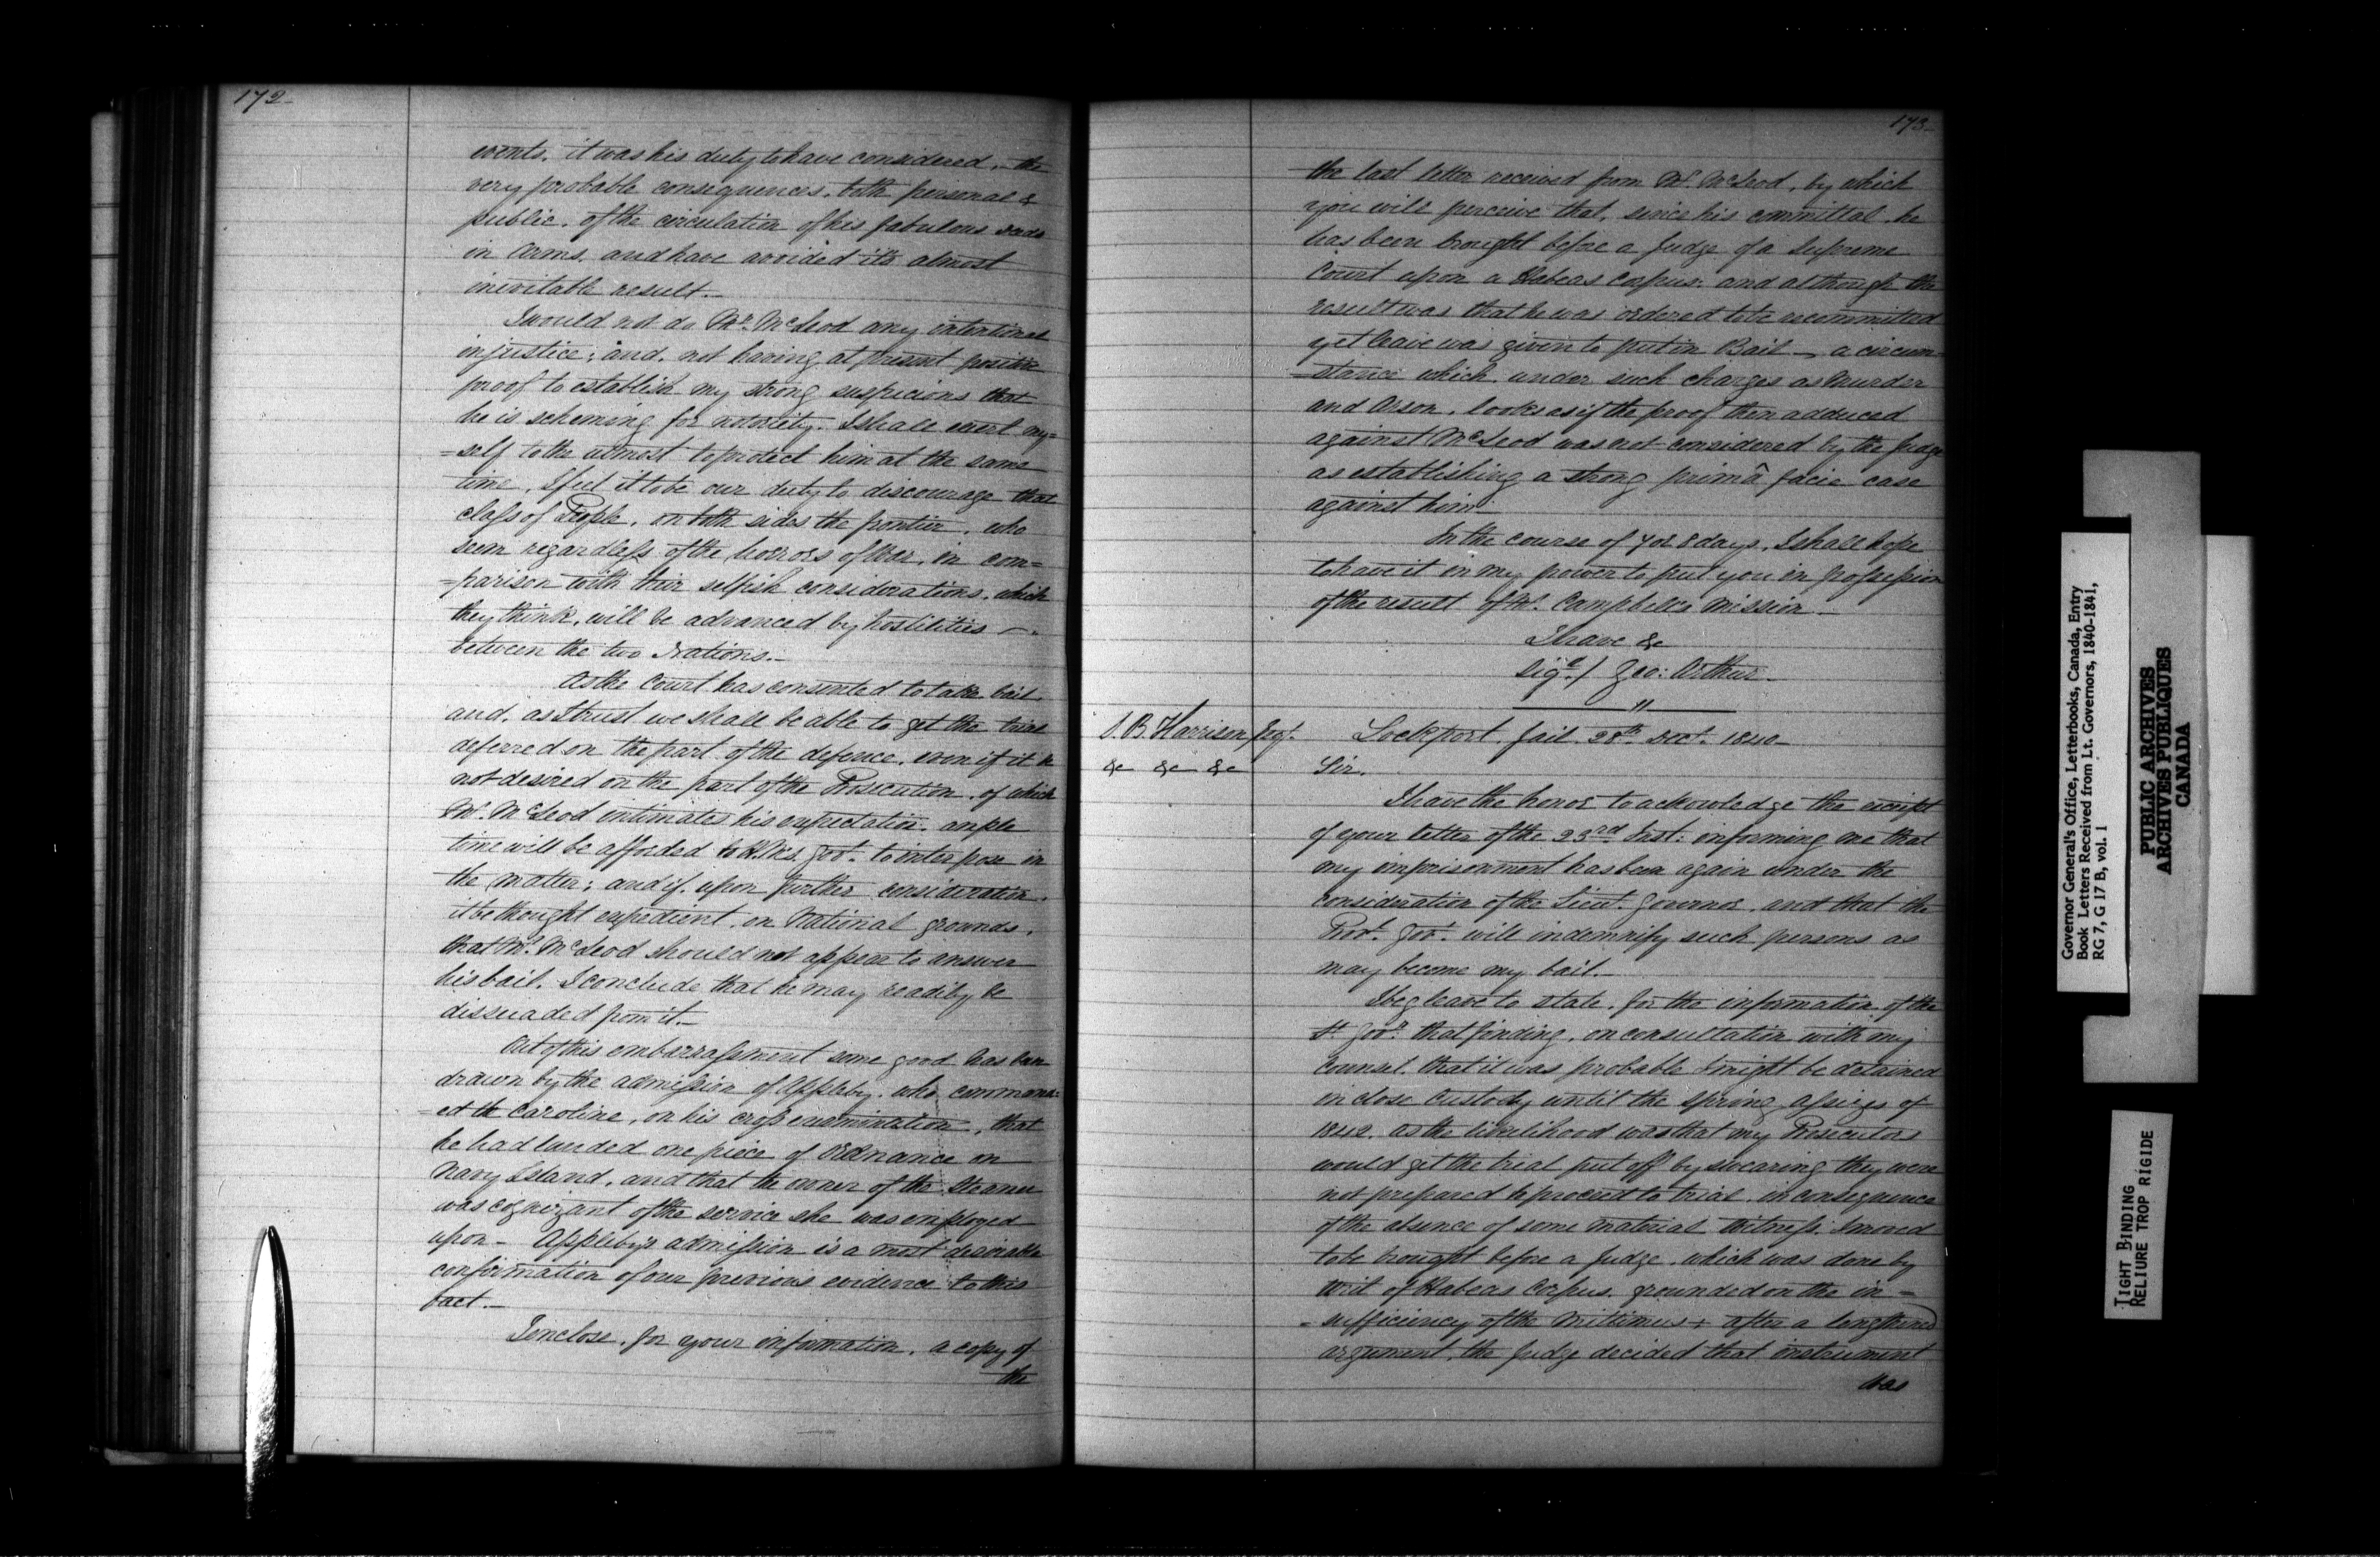 172-
events, it was his duty to have considered, the
very probable consequences, both personal &
public, of the circulation of his fabulous deeds
in Arms, and have avoided it's almost
inevitable result.-
I would not do Mr. McLeod any intentional
injustice; and, not having at present positive
proof to establish my strong suspicions that
he is scheming for notoriety. I shall exert my=
=self to the utmost to protect him at the same
time, I feel it to be our duty to discourage that
class of People, on both sides the frontier, who
seem regardless of the horrors of War, in com=
=parison with their selfish considerations, which
they think, will be advanced by hostilities -
between the two Nations.-
As the Court has consented to take bail
and, as I trust we shall be able to get the trial
deferred on the part of the defence, even if it be
not desired on the part of the Prosecution, of which
Mr. McLeod intimates his expectation, ample
time will be afforded to H.M's. Govt. to interpose in
the matter; and if, upon further consideration,
it be thought expedient, on National grounds,
that Mr. McLeod should not appear to answer
his bail, I conclude that he may readily be
dissuaded from it.-
Out of this embarrassment some good has been
drawn by the admission of Appleby, who command=
=ed the Caroline, on his cross examination, that
he had landed one piece of Ordnance on
Navy Island, and that the owner of the Steamer
was cognizant of the service she was employed
upon - Appleby's admission is a most desirable
confirmation of our previous evidence to this
fact.-
I enclose, for your information, a copy of
the
173-
the last letter received from Mr. McLeod, by which
you will perceive that, since his committal, he
has been brought before a Judge of a Supreme
Court upon a Habeas Corpus: and although the
result was that he was ordered to be recommitted
yet leave was given to put in Bail - a circum=
=stance which, under such charges as Murder
and Arson, looks as if the proof then adduced
against McLeod was not considered by the Judge
as establishing a strong primâ facie case
against him.
In the course of 7 or 8 days, I shall hope
to have it in my power to put you in possession
of the result of Mr. Campbell's Mission.-
I have &c
Sigd/ Geo: Arthur-
"
S.B. Harrison Esqr.
&c &c &c
Lockport Jail 28th Decr. 1840-
Sir,
I have the honor to acknowledge the receipt
of your letter of the 23rd Inst: informing me that
my imprisonment has been again under the
consideration of the Lieut. Governor, and that the
Provl. Govt. will indemnify such persons as
may become my bail.-
I beg leave to state, for the information of the
Lt Govr. that finding, on consultation with my
counsel, that it was probable I might be detained
in close Custody until the Spring Assizes of
1842, as the likelihood was that my Prosecutors
would get the trial put off by swearing they were
not prepared to proceed to trial, in consequence
of the absence of some material Witness, I moved
to be brought before a Judge, which was done by
Writ of Habeas Corpus, grounded on the in=
=sufficiency of the Mittimus & after a lengthened
argument, the Judge decided that instrument
was
Governor General's Office, Letterbooks, Canada, Entry
Book Letters Received from Lt. Governors, 1840-1841,
RG 7, G 17 B, vol. 1
PUBLIC ARCHIVES
ARCHIVES PUBLIQUES
CANADA
TIGHT BINDING
RELIURE TROP RIGIDE